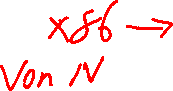 x86 →
Von N